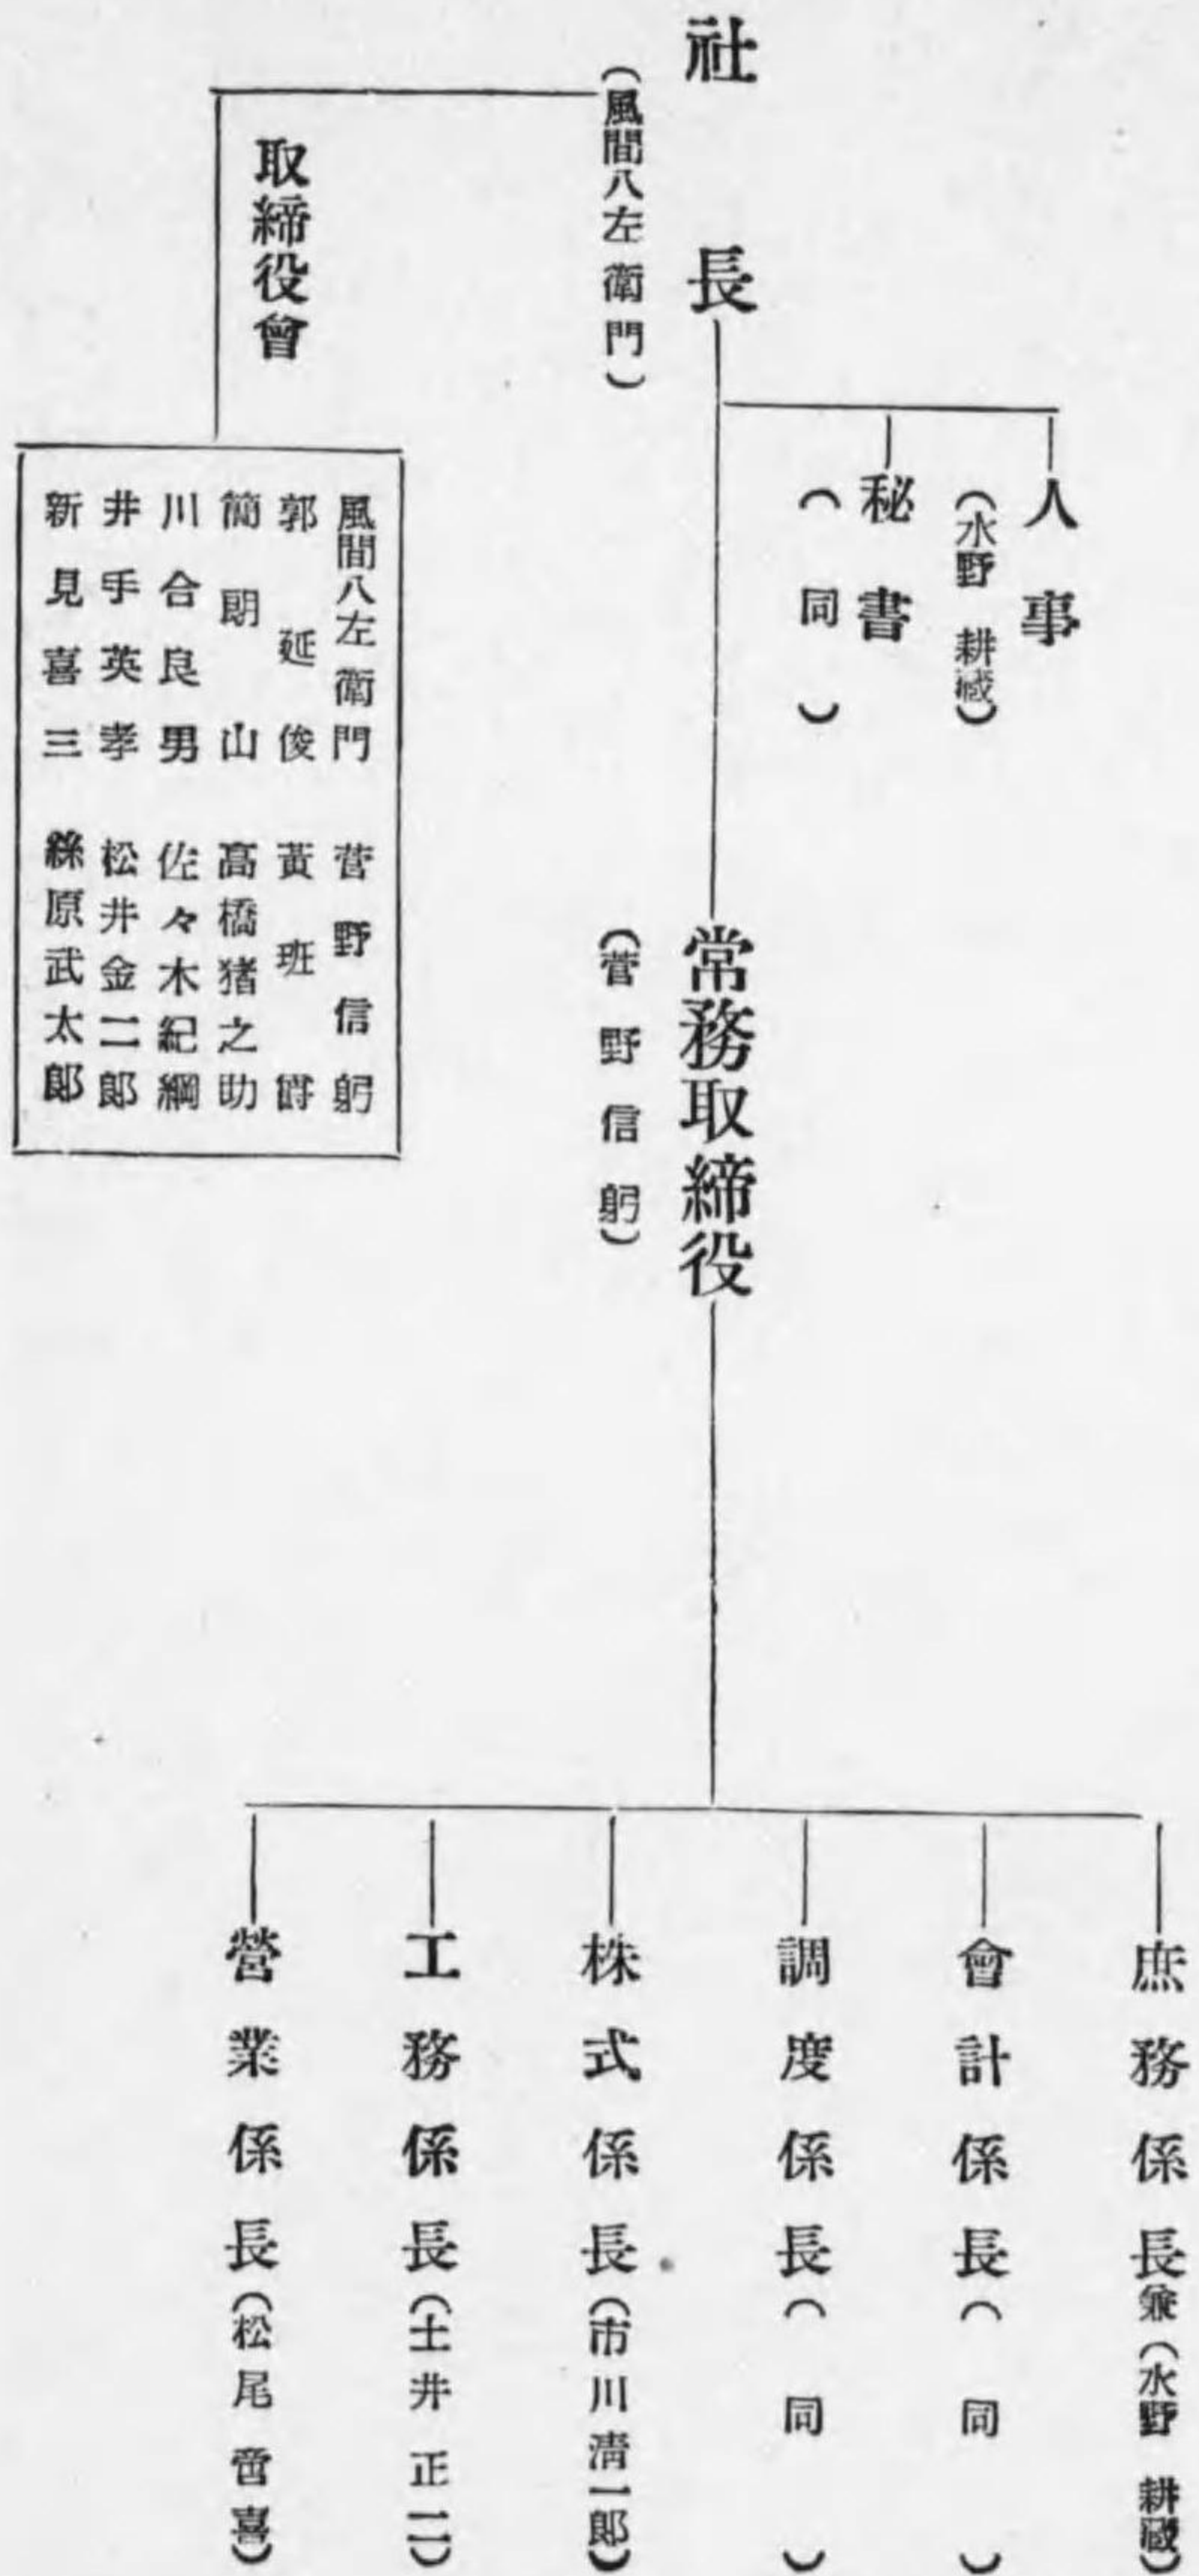 社長
(風間八左衛門)
人事
(水野耕藏)
秘書
(同)
取締役會
風間八左衛門
菅野信躬
郭延俊
黃班爵
簡朗山
高橋猪之助
川合良男
佐々木紀綱
井手英孝
松井金二郎
新見喜三
絲原武太郎
常務取締役
(菅野信躬)
庶務係長兼(水野耕藏)
會計係長(同)
調度係長(同)
株式係長(市川淸一郎)
工務係長(土井正二)
營業係長(松尾喜)